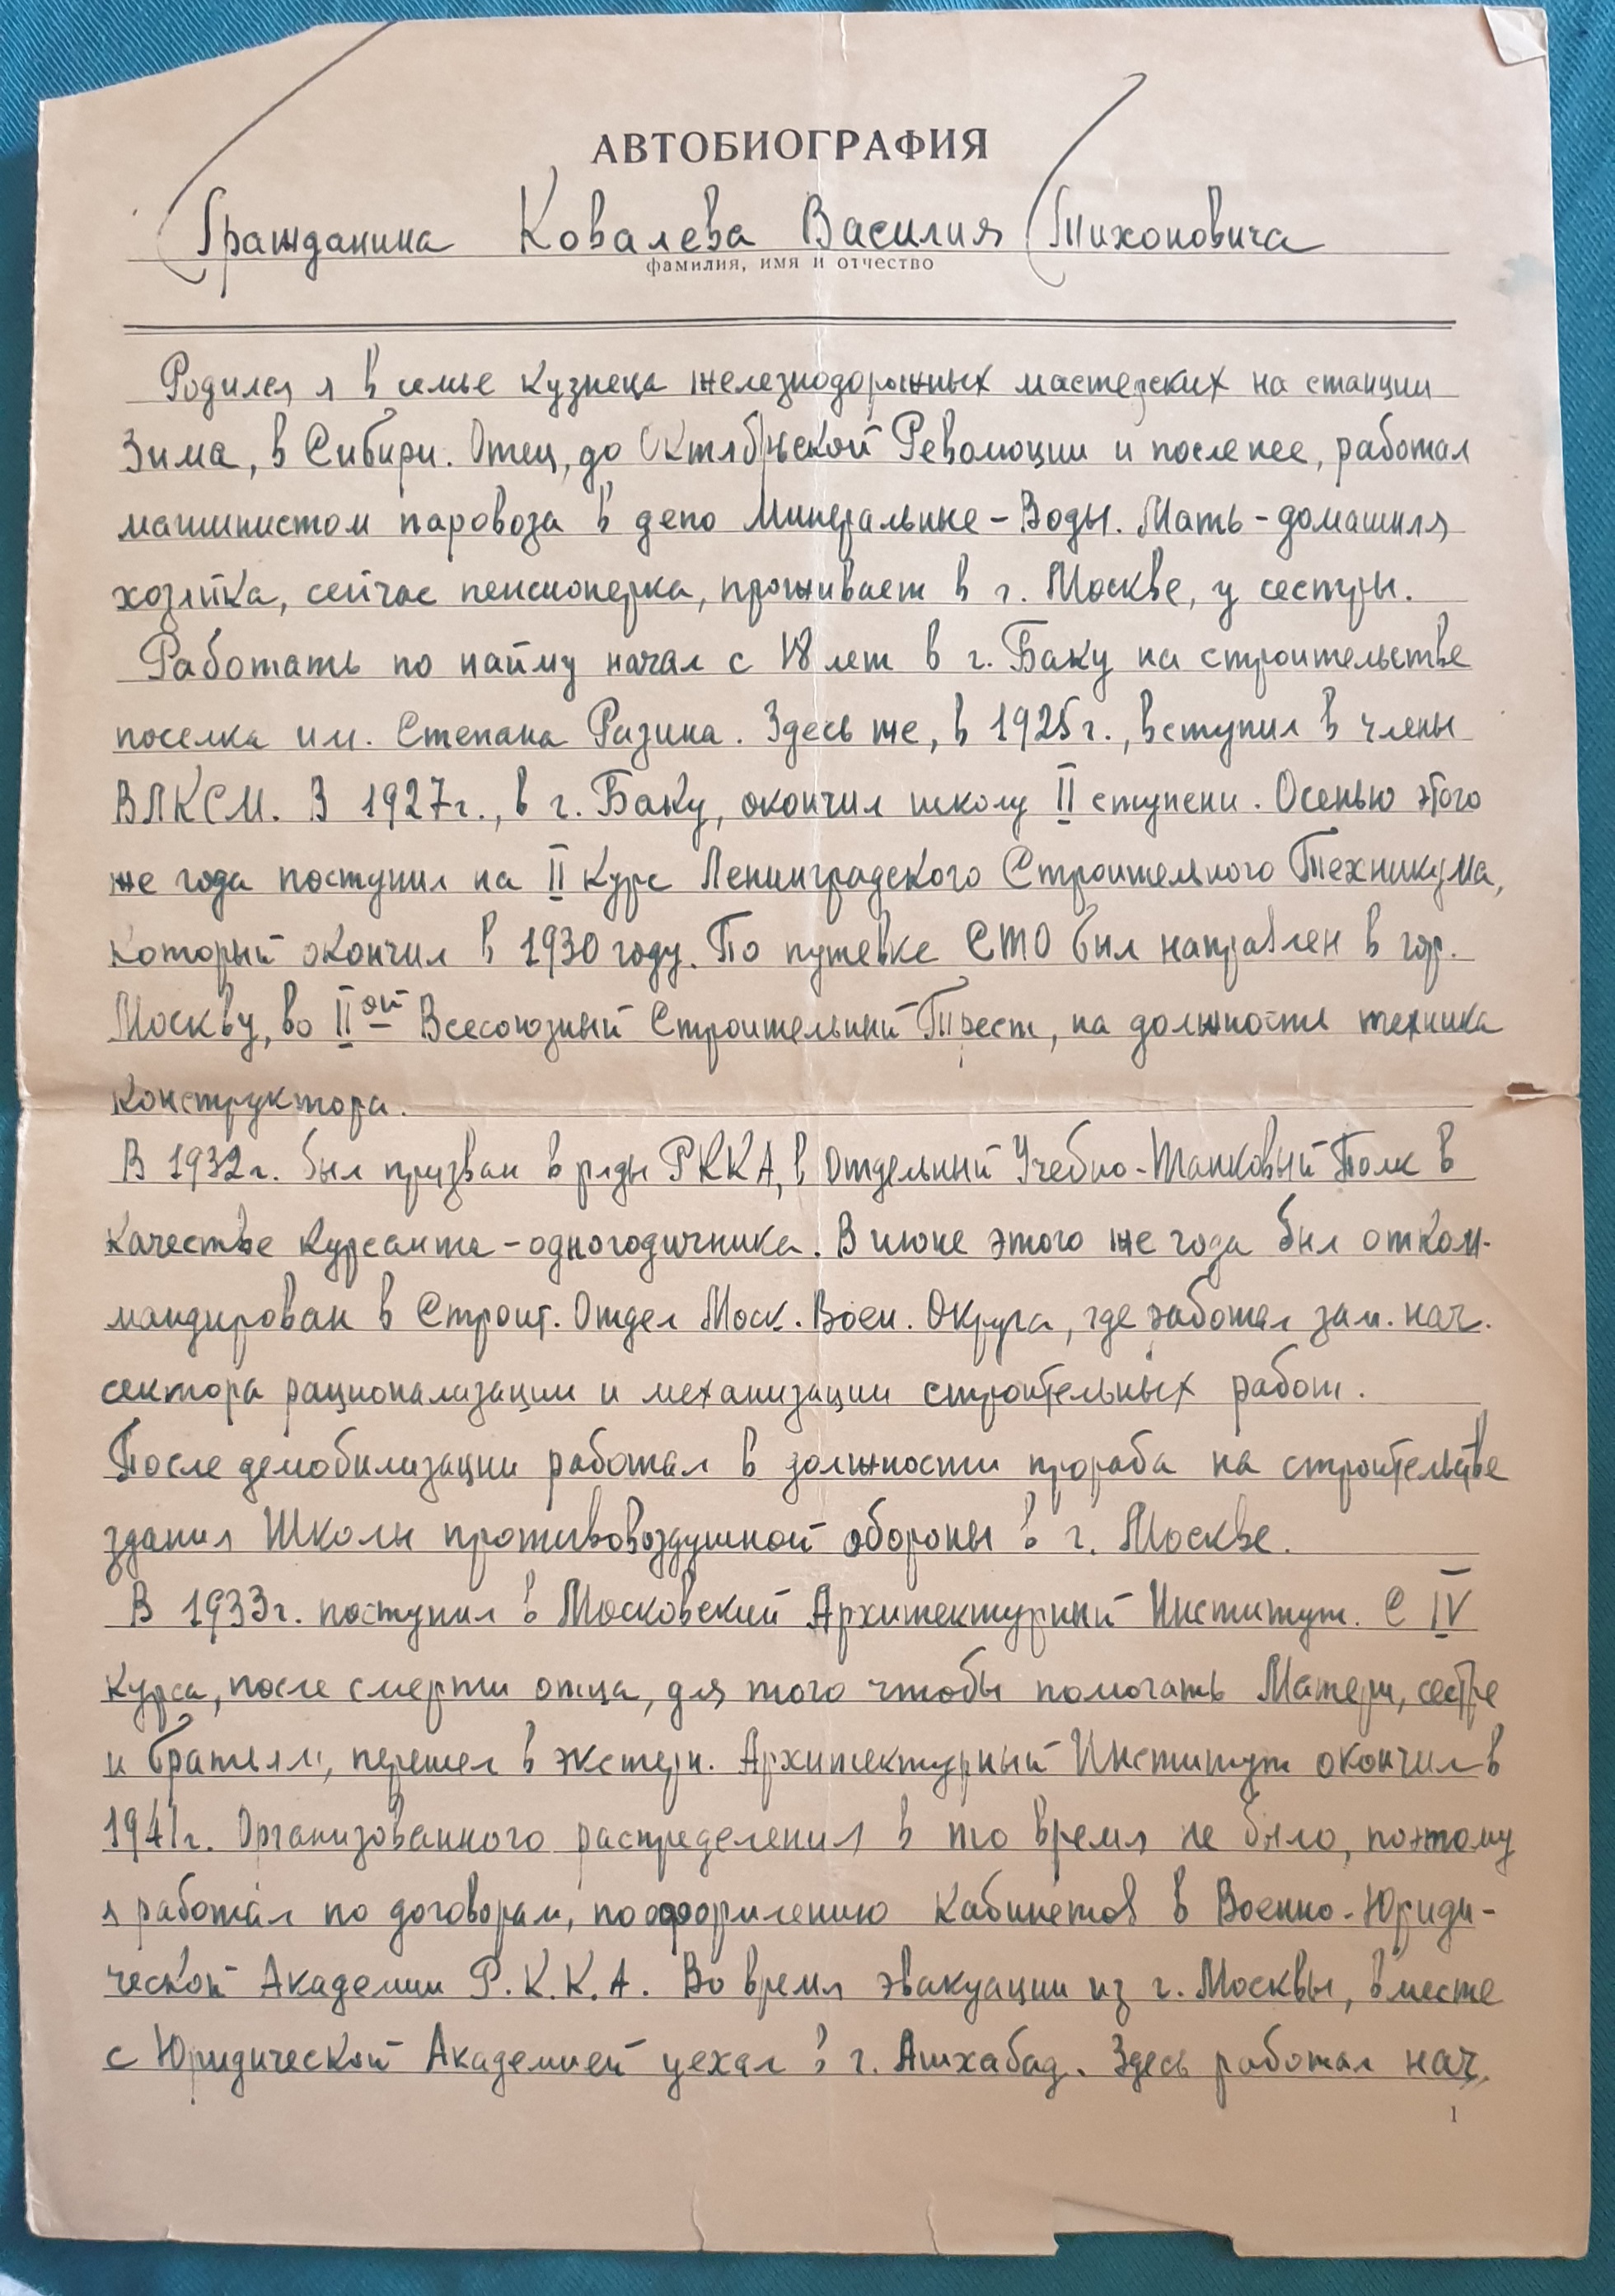 АВТОБИОГРАФИЯ
Гражданина Ковалева Василия Тихоновича
фамилия, имя и отчество
Родился я в семье кузнеца железнодорожных мастерских на станции
Зима, в Сибири. Отец, до Октябрьской Революции и после нее, работал
машинистом паровоза в депо Минеральные-Воды. Мать-домашняя
хозяйка, сейчас пенсионерка, проживает в г. Москве, у сестры.
Работать по найму начал с 18 лет в г. Баку на строительстве
поселка им. Степана Разина. Здесь же, в 1925г., вступил в члены
ВЛКСМ. В 1927г., в г. Баку, окончил школу II ступени. Осенью этого
же года поступил на II курс Ленинградского Строительного Техникума,
который окончил в 1930 году. По путевке СТО был направлен в гор.
Москву, во II ой Всесоюзный Строительный Трест, на должность техника
конструктора.
В 1932г. был призван в ряды РККА, в Отдельный Учебно-Танковый Полк в
качестве курсанта-одногодичника. В июне этого же года был отком-
мандирован в Строит. Отдел Моск. Воен. Округа, где работал зам. нач.
сектора рационализации и механизации строительных работ.
После демобилизации работал в должности прораба на строительстве
здания Школы противовоздушной обороны в г. Москве.
В 1933г. поступил в Московский Архитектурный Институт. С IV
курса, после смерти отца, для того чтобы помогать Матери, сестре
и братьям, перешел в экстерн. Архитектурный Институт окончил в
1941г. Организованного распределения в то время не было, поэтому
я работал по договорам, по оформлению кабинетов в Военно-Юриди-
ческой Академии Р.К.К.А. Во время эвакуации из г. Москвы, вместе
с Юридической Академией уехал в г. Ашхабад. Здесь работал нач.
1